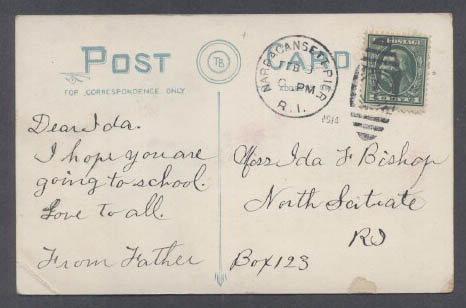 POST CARD
FOR CORRESPONDENCE ONLY
TB
NARRAGANSETT PIER
FEB 3
PM
R.I.
1914
Dear Ida.
I hope you are
going to school.
Love to all.
From Father
Miss Ida F Bishop
North Scituate
RI
Box 123